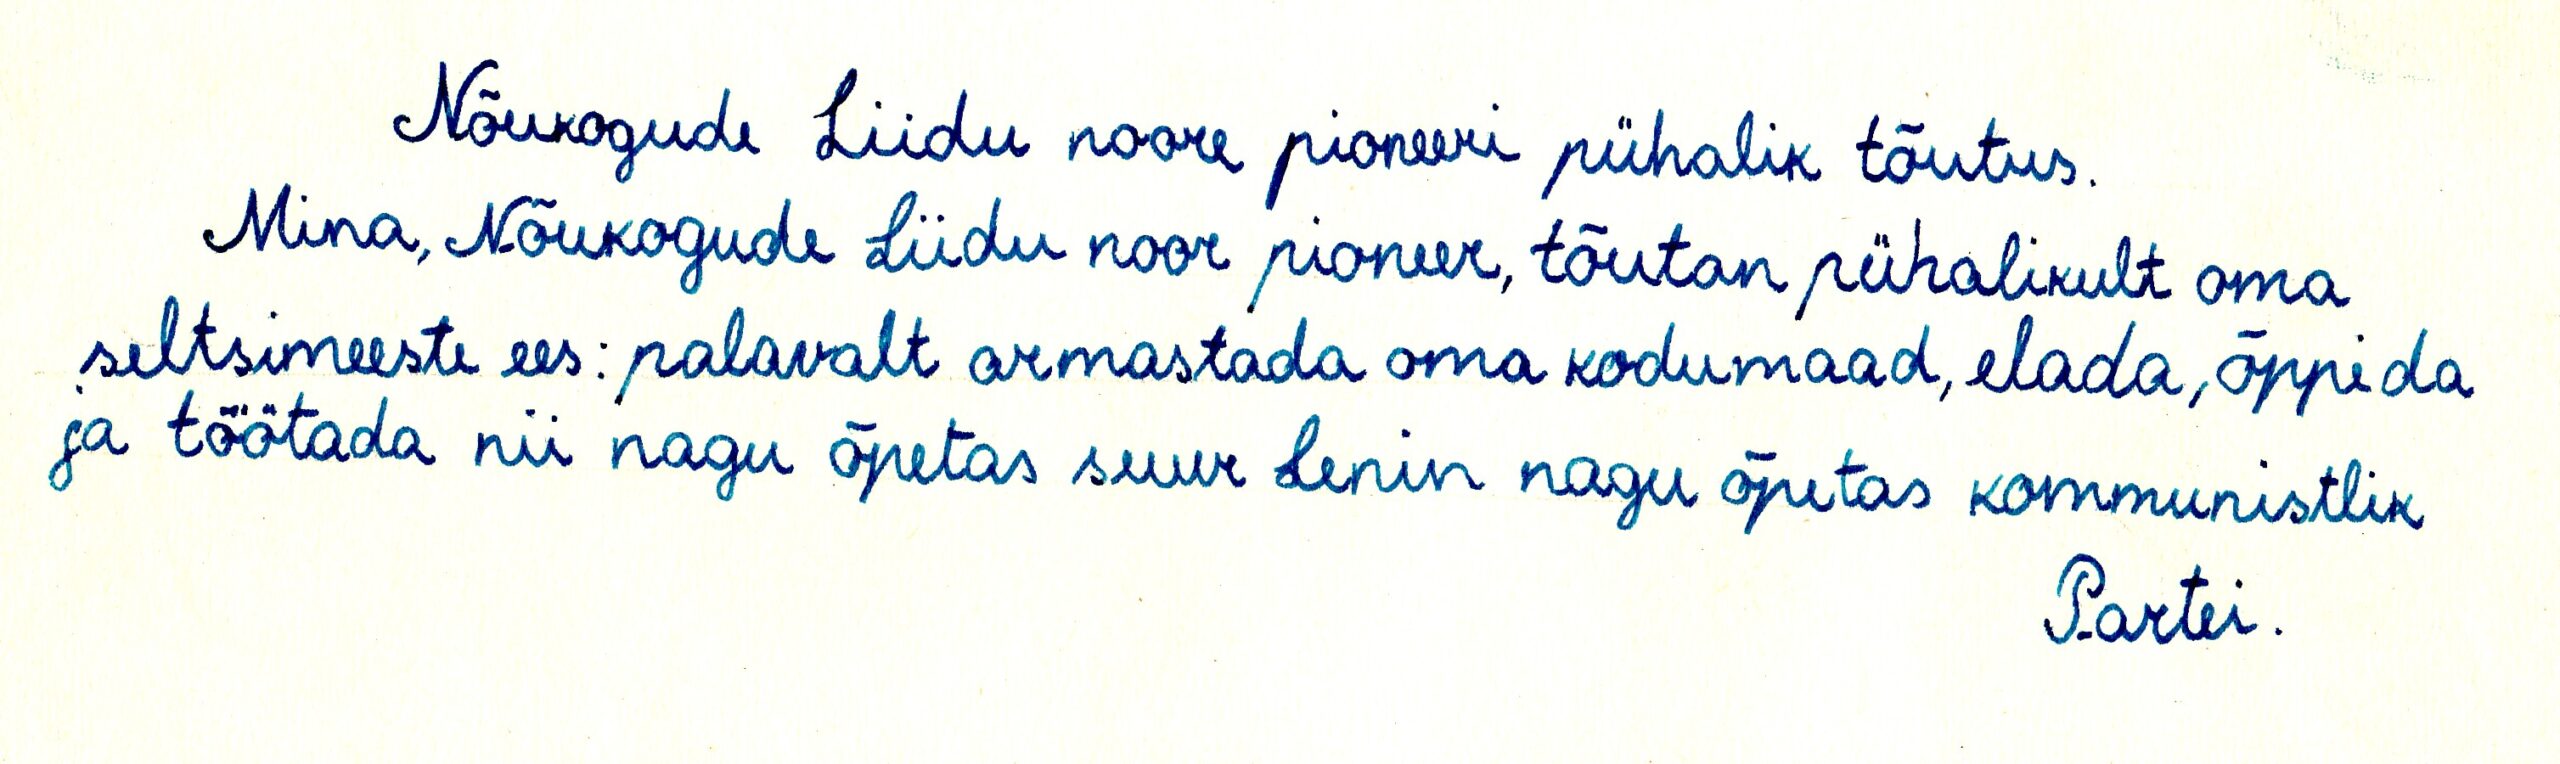 Nõukogude Liidu noore pioneeri pühalik tõutus.
Mina, Nõukogude Liidu noor pioneer, tõutan pühalikult oma
seltsimeeste ees: palavalt armastada oma kodumaad, elada, õppida
ja töötada nii nagu õpetas suur Lenin nagu õpetas kommunistlik
Partei.